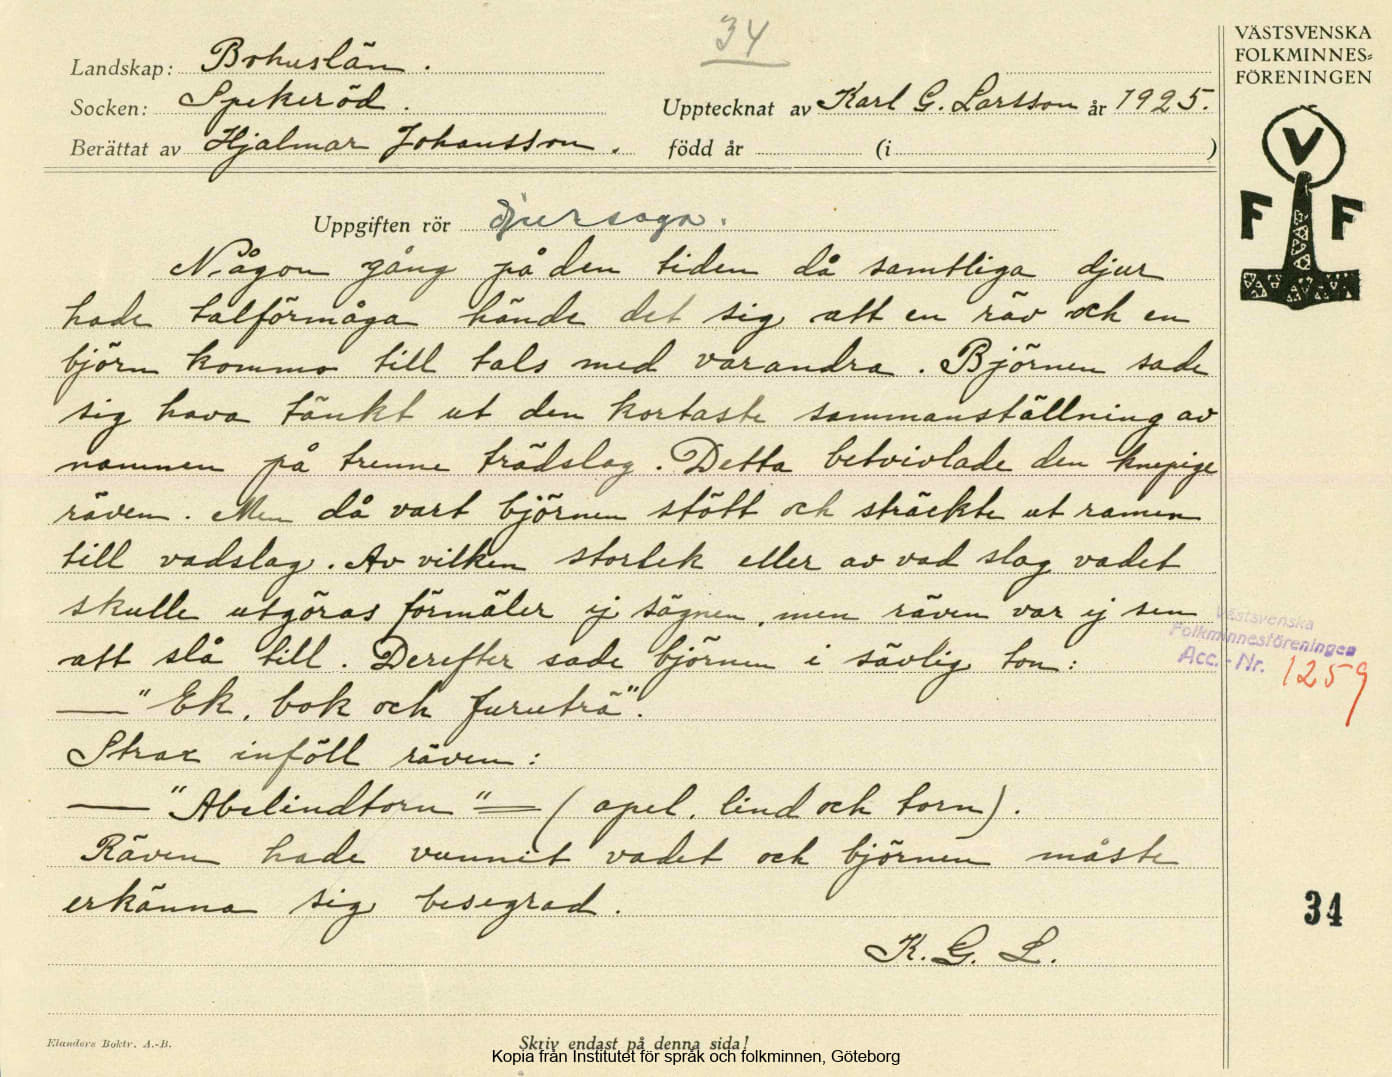 34
VÄSTSVENSKA
FOLKMINNES=
FÖRENINGEN
Landskap: Bohuslän.
Socken: Spekeröd.
Upptecknat av Karl G. Larsson år 1925.
Berättat av Hjalmar Johansson.
född år (i )
V
F F
Uppgiften rör djursaga.
Någon gång på den tiden då samtliga djur
hade talförmåga hände det sig att en räv och en
björn kommo till tals med varandra. Björnen sade
sig hava tänkt ut den kortaste sammanställning av
namnen på trenne trädslag. Detta betvivlade den knepige
räven. Men då vart björnen stött och sträckte ut ramen
till vadslag. Av vilken storlek eller av vad slag vadet
skulle utgöras förmäler ej sägnen, men räven var ej sen
att slå till. Derefter sade björnen i sävlig ton:
— "Ek, bok och furuträ".
Strax inföll räven:
— "Abelindtorn" = (apel, lind och torn).
Räven hade vunnit vadet och björnen måste
erkänna sig besegrad.
K. G. L.
Västsvenska
Folkminnesföreningen
Acc.-Nr. 1259
34
Elanders Boktr. A.-B.
Skriv endast på denna sida!
Kopia från Institutet för språk och folkminnen, Göteborg